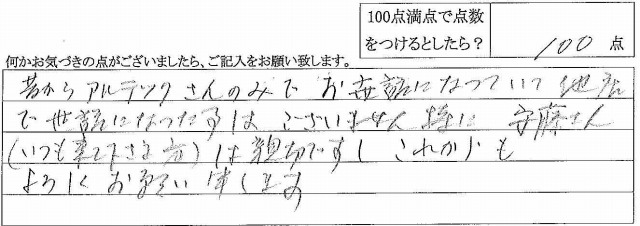 100点満点で点数
をつけるとしたら? 100 点
何かお気づきの点がございましたら、ご記入をお願い致します。
昔からアルテックさんのみでお世話になっていて他店
で世話になった事はございません 特に 安藤さん
(いつも来て下さる方)は親切ですし これからも
よろしくお願い申します